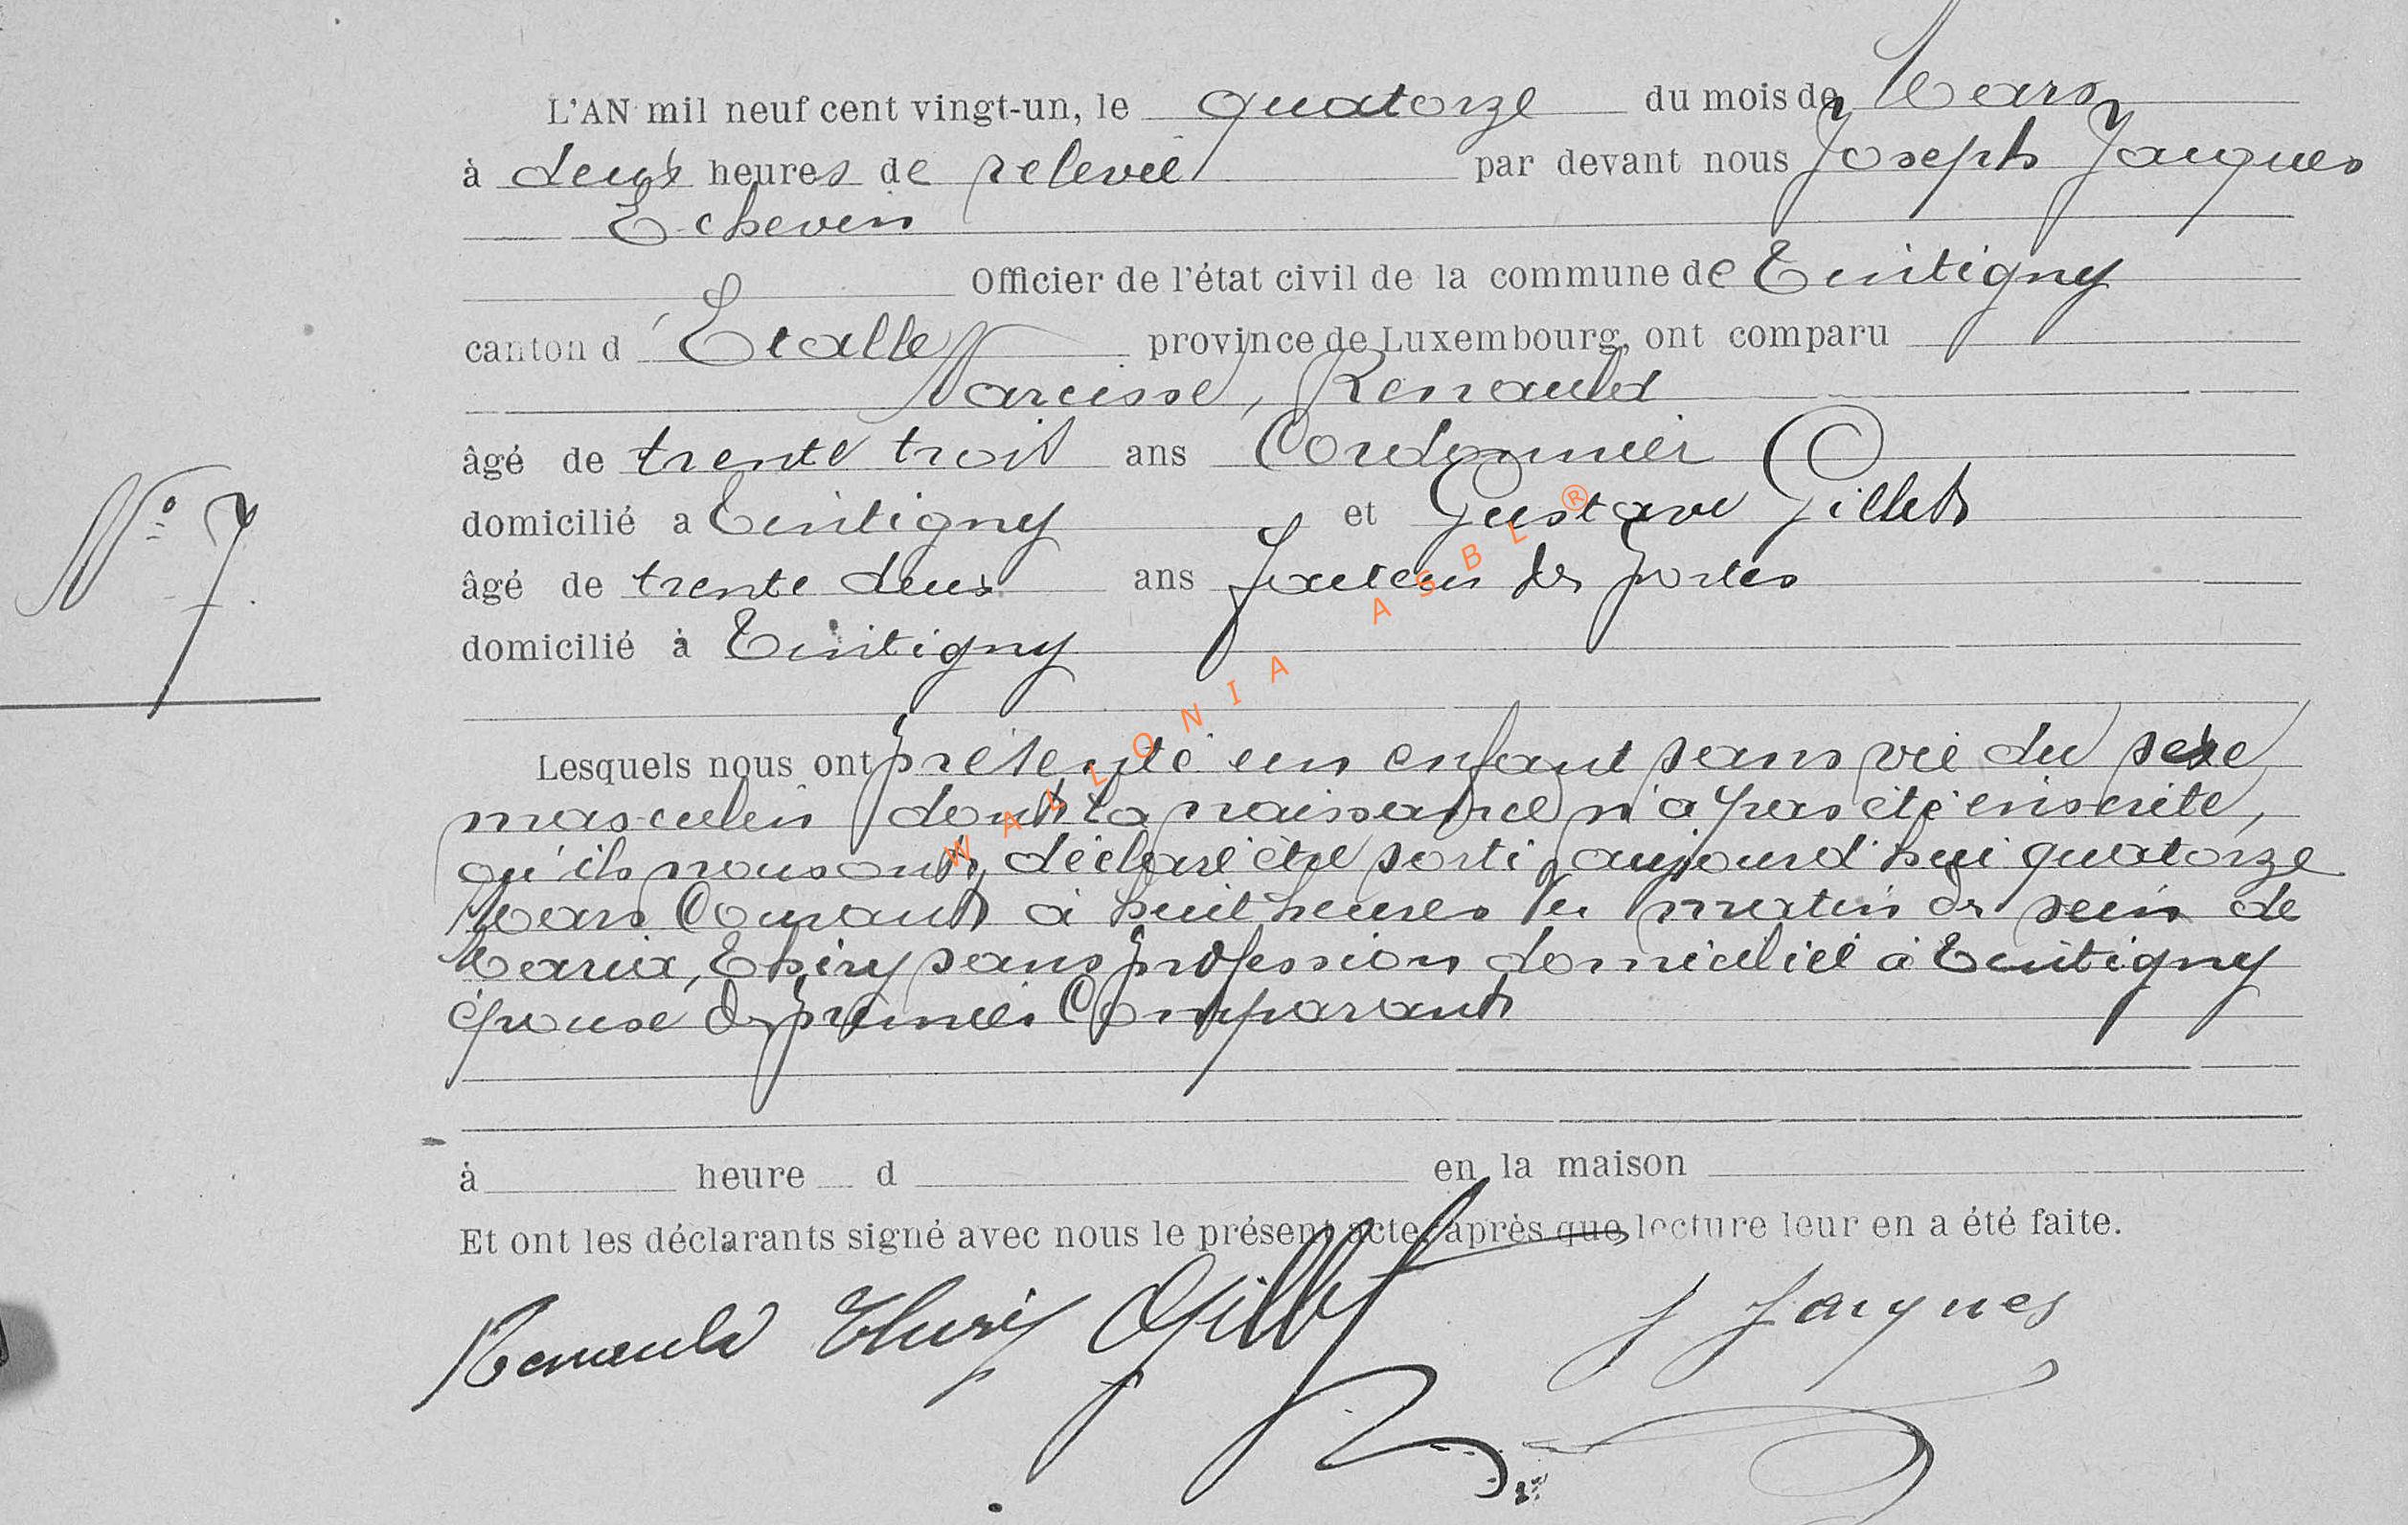 L'AN mil neuf cent vingt-un, le quatorze du mois de Mars
à deux heures de relevée par devant nous Joseph Jacques
Echevin
Officier de l'état civil de la commune de Tintigny
canton d'Etalle province de Luxembourg, ont comparu
Narcisse, Renauld
âgé de trente trois ans Cordonnier
N° 7
domicilié a Tintigny et Gustave Gillet
âgé de trente deux ans facteur des postes
domicilié à Tintigny
Lesquels nous ont présenté un enfant sans vie du sexe
masculin dont la naissance n'a pas été inscrite,
qu'ils nous ont déclaré être sorti aujourd'hui quatorze
Mars Courant à huit heures du matin du sein de
Maria, Thiry sans profession domiciliée à Tintigny
épouse du premier Comparant
à heure d en la maison
Et ont les déclarants signé avec nous le présent acte, après que lecture leur en a été faite.
Renauld Thiry Gillet J Jacques
WALLONIA ASBL ®